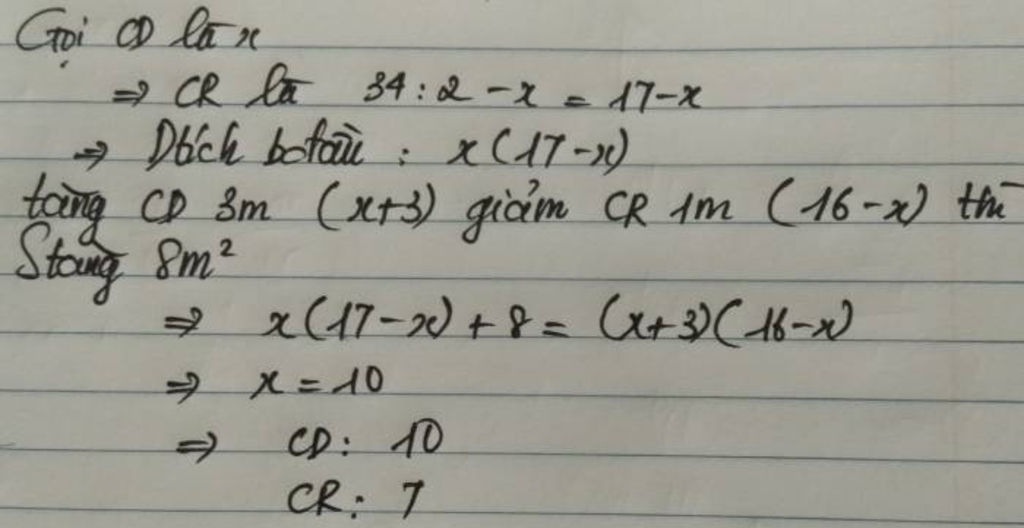 Gọi CD là x
⇒ CR là 34 : 2 - x = 17-x
⇒ Dtích bđầu : x(17-x)
tăng CD 3m (x+3) giảm CR 1m (16-x) thì
S tăng 8m²
⇒ x(17-x) + 8 = (x+3)(16-x)
⇒ x = 10
⇒ CD : 10
CR : 7